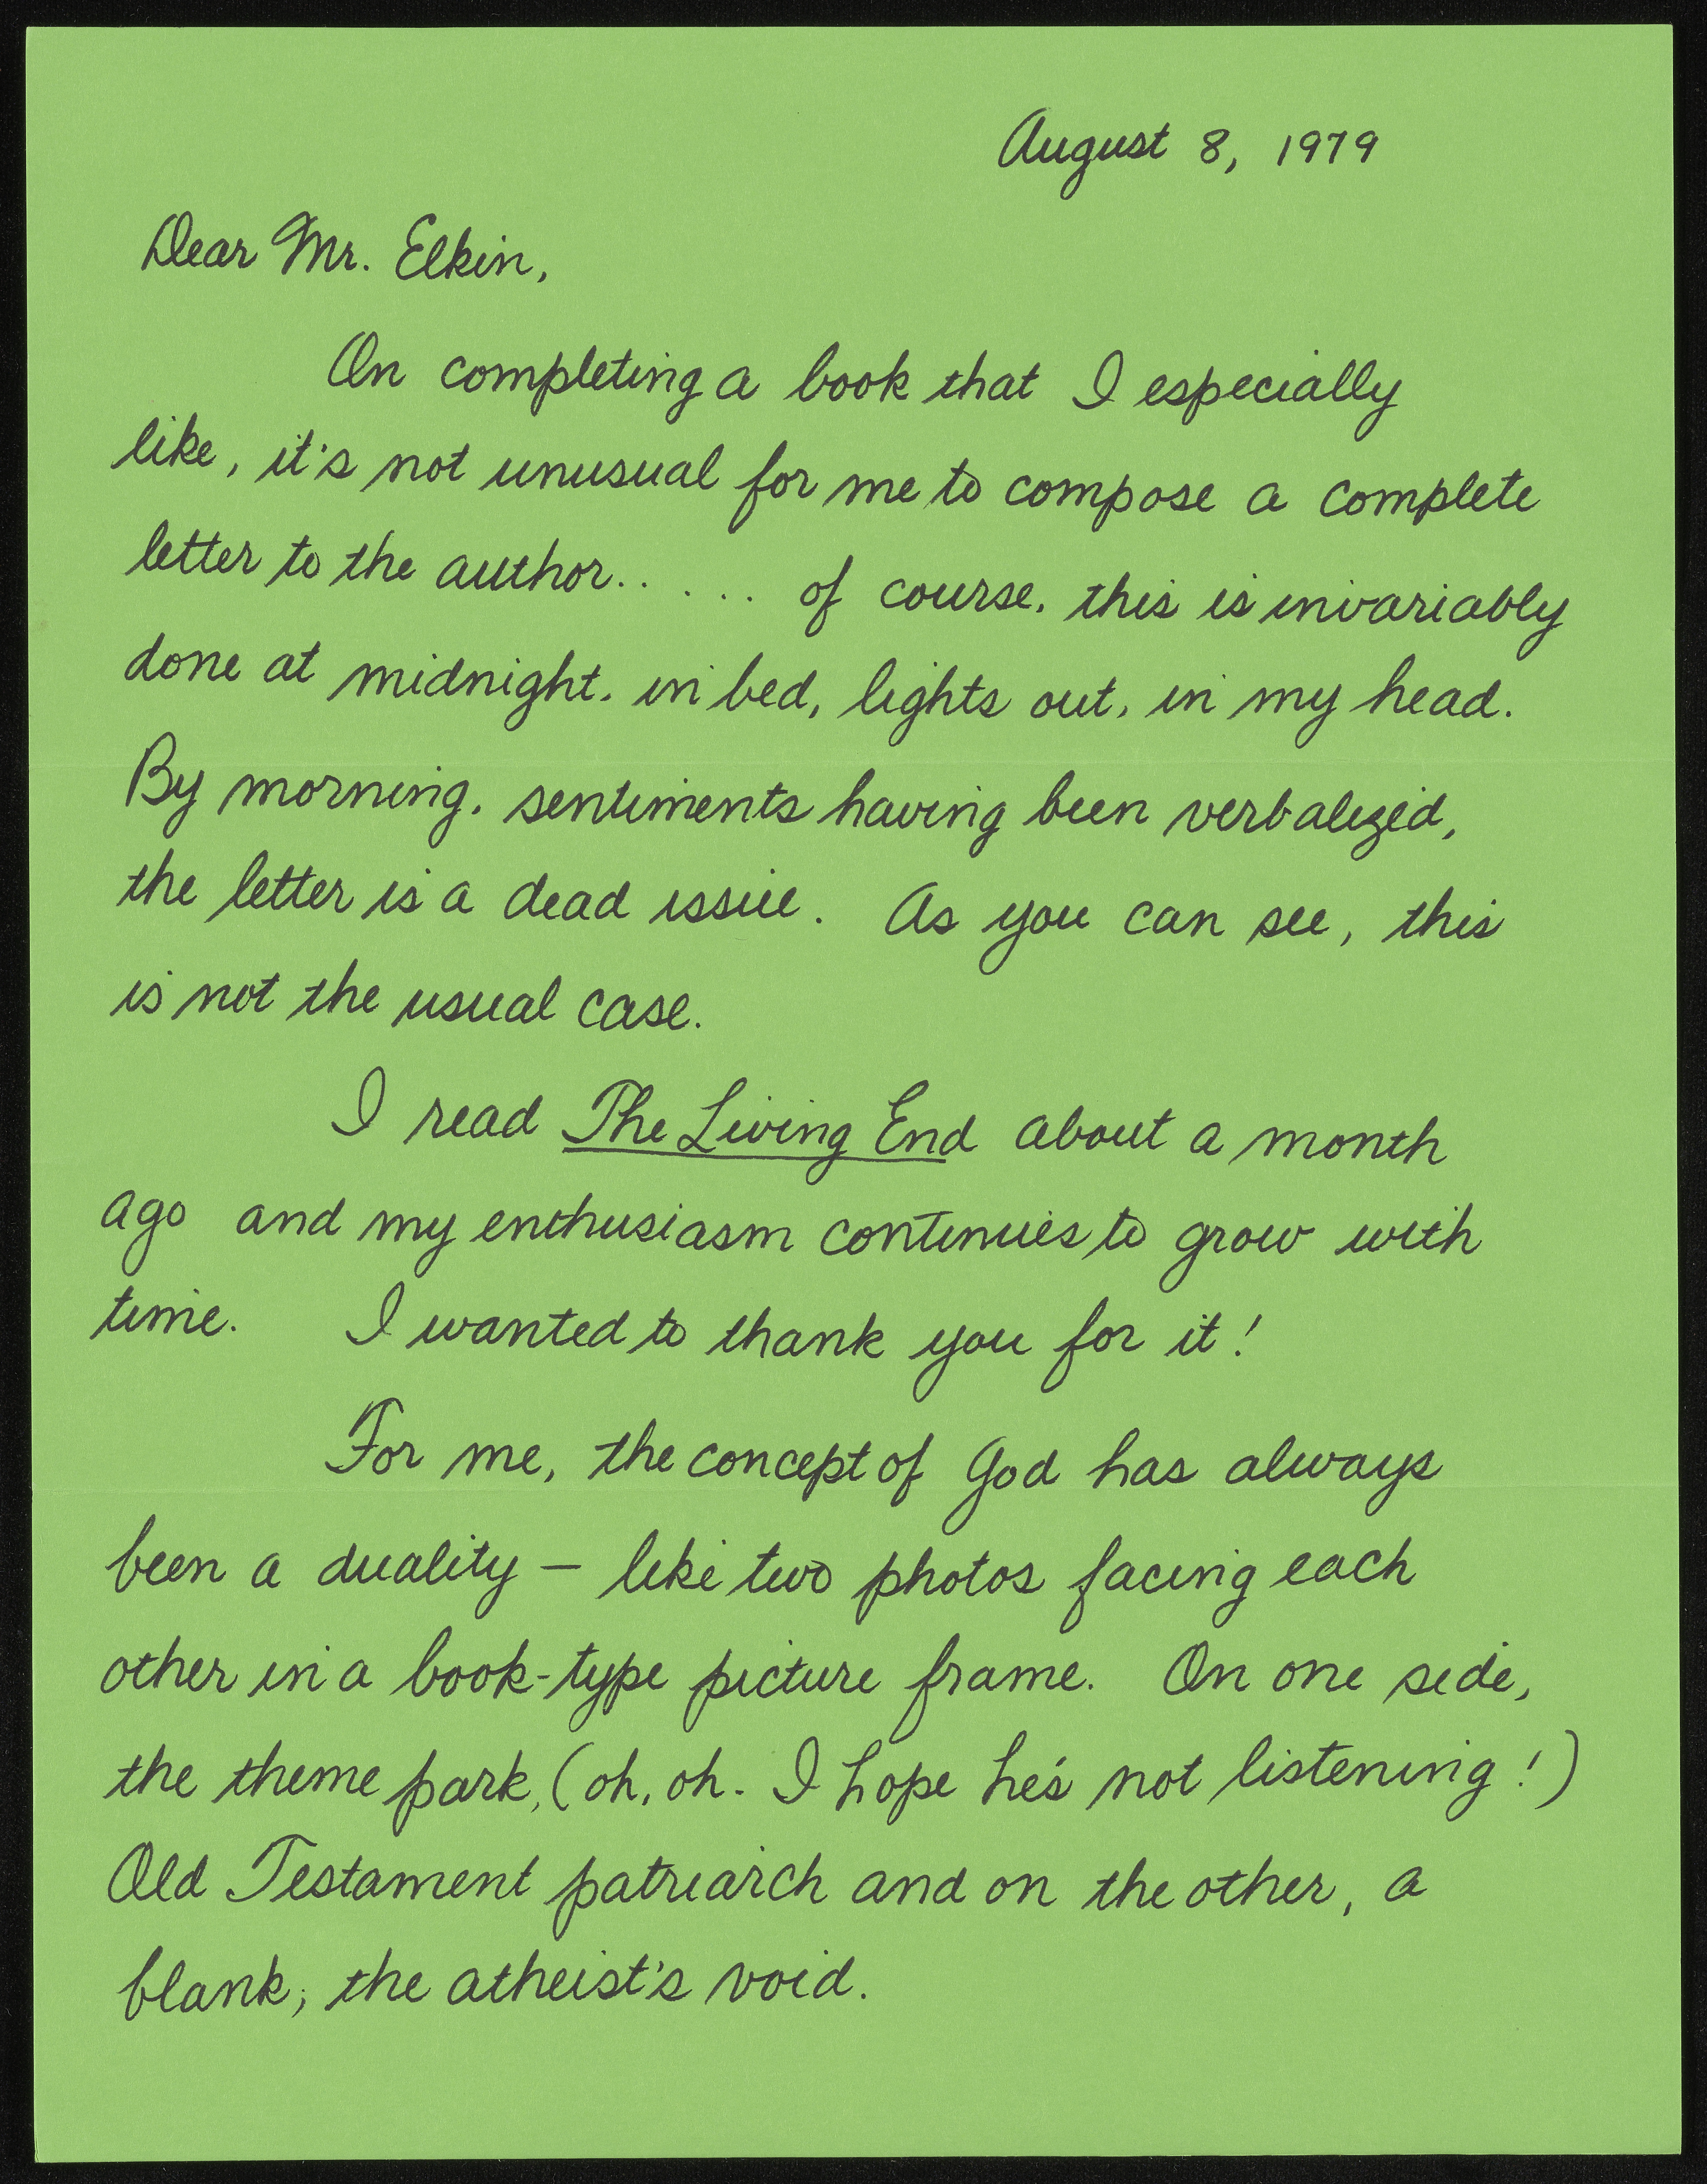 August 8, 1979
Dear Mr. Elkin,
On completing a book that I especially
like, it's not unusual for me to compose a complete
letter to the author.. ... of course, this is invariably
done at midnight, in bed, lights out, in my head.
By morning, sentiments having been verbalized,
the letter is a dead issue. As you can see, this
is not the usual case.
I read The Living End about a month
ago and my enthusiasm continues to grow with
time. I wanted to thank you for it!
For me, the concept of God has always
been a duality – like two photos facing each
other in a book-type picture frame. On one side,
the theme park, (oh, oh. I hope he's not listening!)
Old Testament patriarch and on the other, a
blank; the atheist's void.